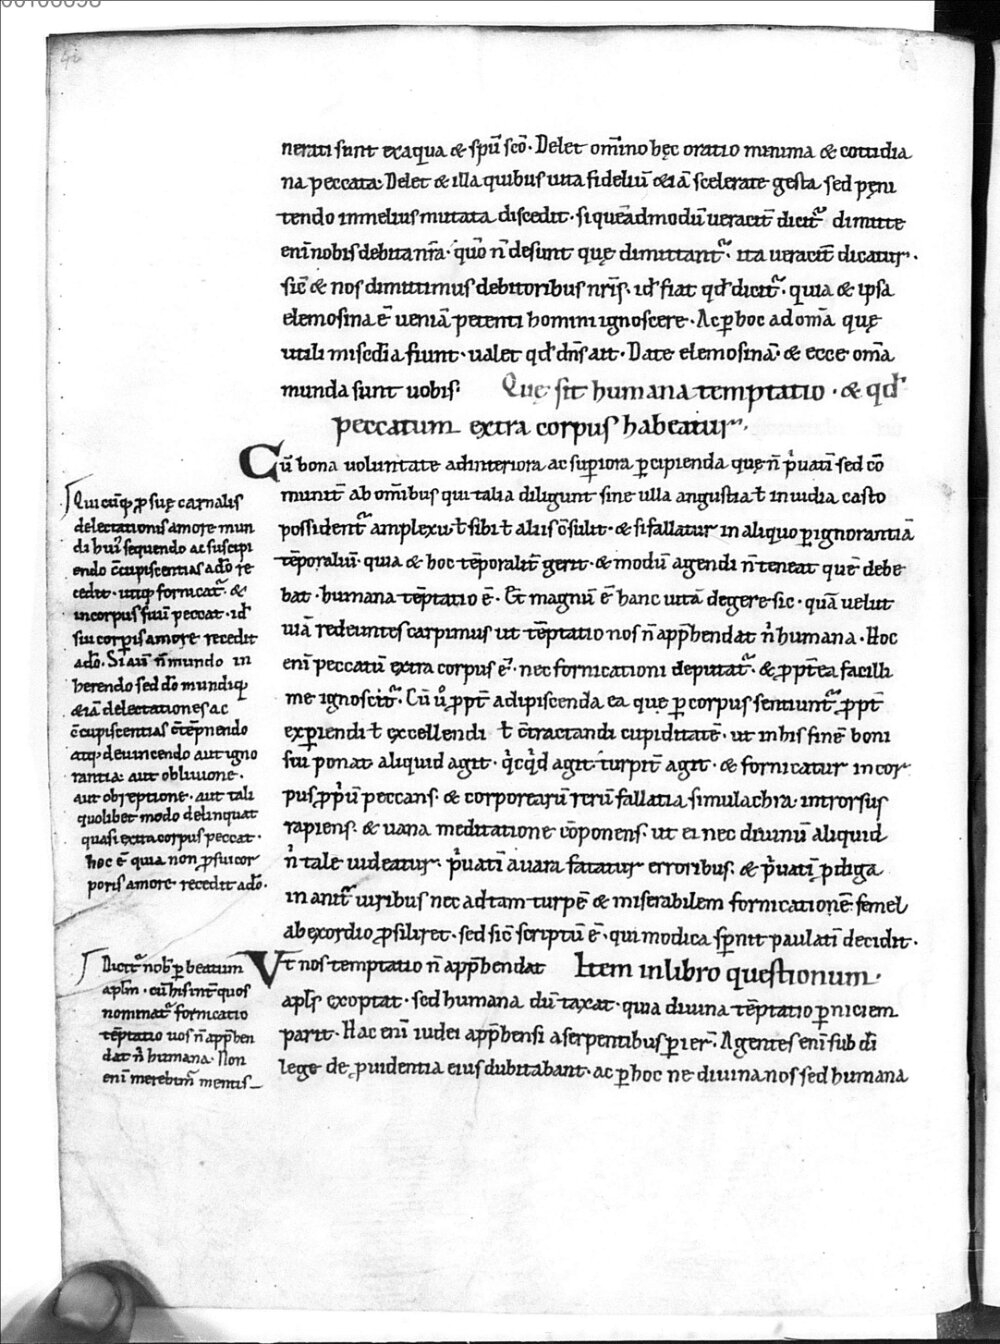 nerati sunt ex aqua & spū scō. Delet om̄ino hęc oratio minima & cottidia
na peccata. Delet & illa quibus uita fideliū &iā scelerate gesta sed pęni
tendo in melius mutata discedit. si quēadmodū ueracit̄ dicit᷑ dimitte
enī nobis debita nr̄a. quō n̄ desunt quę dimittant᷑. ita ueracit̄ dicatur.
sic̄ & nos dimittimus debitoribus nr̄is. id fiat qd̄ dicit᷑. quia & ipsa
elemosina ē ueniā petenti homini ignoscere. Ac ꝑ hoc ad om̄a quę
utili mīscdia fiunt. ualet qd̄ dn̄s ait. Date elemosinā. & ecce om̄a
munda sunt uobis. Quę sit humana temptatio. & qd̄
peccatum extra corpus habeatur.
Cū bona uoluntate ad interiora ac suꝑiora ꝑcipienda quę n̄ pͥuati sed cō
munit̄ ab om̄ibus qui talia diligunt sine ulla angustia ł inuidia casto
possident᷑ amplexu ł sibi ł aliis cōsulit. & si fallatur in aliquo ꝑ ignorantiā
tēporaliū. quia & hoc tēporalit̄ gerit. & modū agendi n̄ teneat quē debe
bat. humana tēptatio ē. Et magnū ē hanc uitā degere sic. quā uelut
uiā redeuntes carpimus ut tēptatio nos n̄ app̄hendat nͥ humana. Hoc
enī peccatū extra corpus ē. nec fornicationi deputat᷑. & ꝓpt̄ea facilli
me ignoscit᷑. Cū uͦ ꝓpt̄ adipiscenda ea quę ꝑ corpus sentiunt᷑ ꝓpt̄
exꝑiendi ł excellendi ł c̄tractandi cupiditatē. ut in his finē boni
sui ponat aliquid agit. qͥcqͥd agit turpit̄ agit. & fornicatur in cor
pus ꝓpͥū peccans. & corporearū rerū fallatia simulachra introrsus
rapiens. & uana meditatione cōponens. ut ei nec diuinū aliquid
nͥ tale uideatur. pͥuatī auara fatatur erroribus. & pͥuatī ꝓdiga
inanit᷑ uiribus nec ad tam turpē & miserabilem fornicationē semel
ab exordio ꝓsiliret. sed sic̄ scriptū ē. qui modica sꝑnit paulatī decidit.
Vt nos temptatio n̄ app̄hendat Item in libro questionum.
apl̄s exoptat. sed humana dū taxat. quia diuina tēptatio ꝑniciem
parit. Hac enī iudei app̄hensi a serpentibus ꝑier̄. Agentes enī sub dī
lege de ꝓuidentia eius dubitabant. ac ꝑ hoc ne diuina nos sed humana
Qui cūq; ꝓ suę carnalis
delectationis amore mun
di hui᷒ sequendo ac suscipi
endo c̄cupiscentias a dō re
cedit. utiq; fornicat᷑. &
in corpus suū peccat. id
sui corꝑis amore recedit
a dō. Si aū n̄ mundo in
herendo sed dō mundiq;
&iā delectationes ac
c̄cupiscentias c̄tēpnendo
atq; deuincendo aut igno
rantia. aut obliuione.
aut obreptione. aut tali
quolibet modo delinquat
quasi extra corpus peccat.
hoc ē quia non ꝓ sui cor
poris amore recedit a dō.
Dicit᷑ nob᷒ ꝑ beatum
apl̄m. cū his int̄ quos
nominat᷑ fornicatio
tēptatio uos n̄ app̄hen
dat nͥ humana. Non
enī merebim̄ mentis